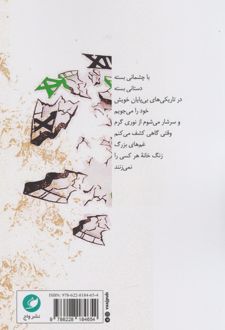 با چشمانی بسته
دستانی بسته
در تاریکی‌های بی‌پایان خویش
خود را می‌جویم
و سرشار می‌شوم از نوری گرم
وقتی گاهی کشف می‌کنم
غم‌های بزرگ
زنگ خانهٔ هر کسی را
نمی‌زنند
نشر واج
ISBN: 978-622-8184-65-4
9 786228 184654
vaajpub